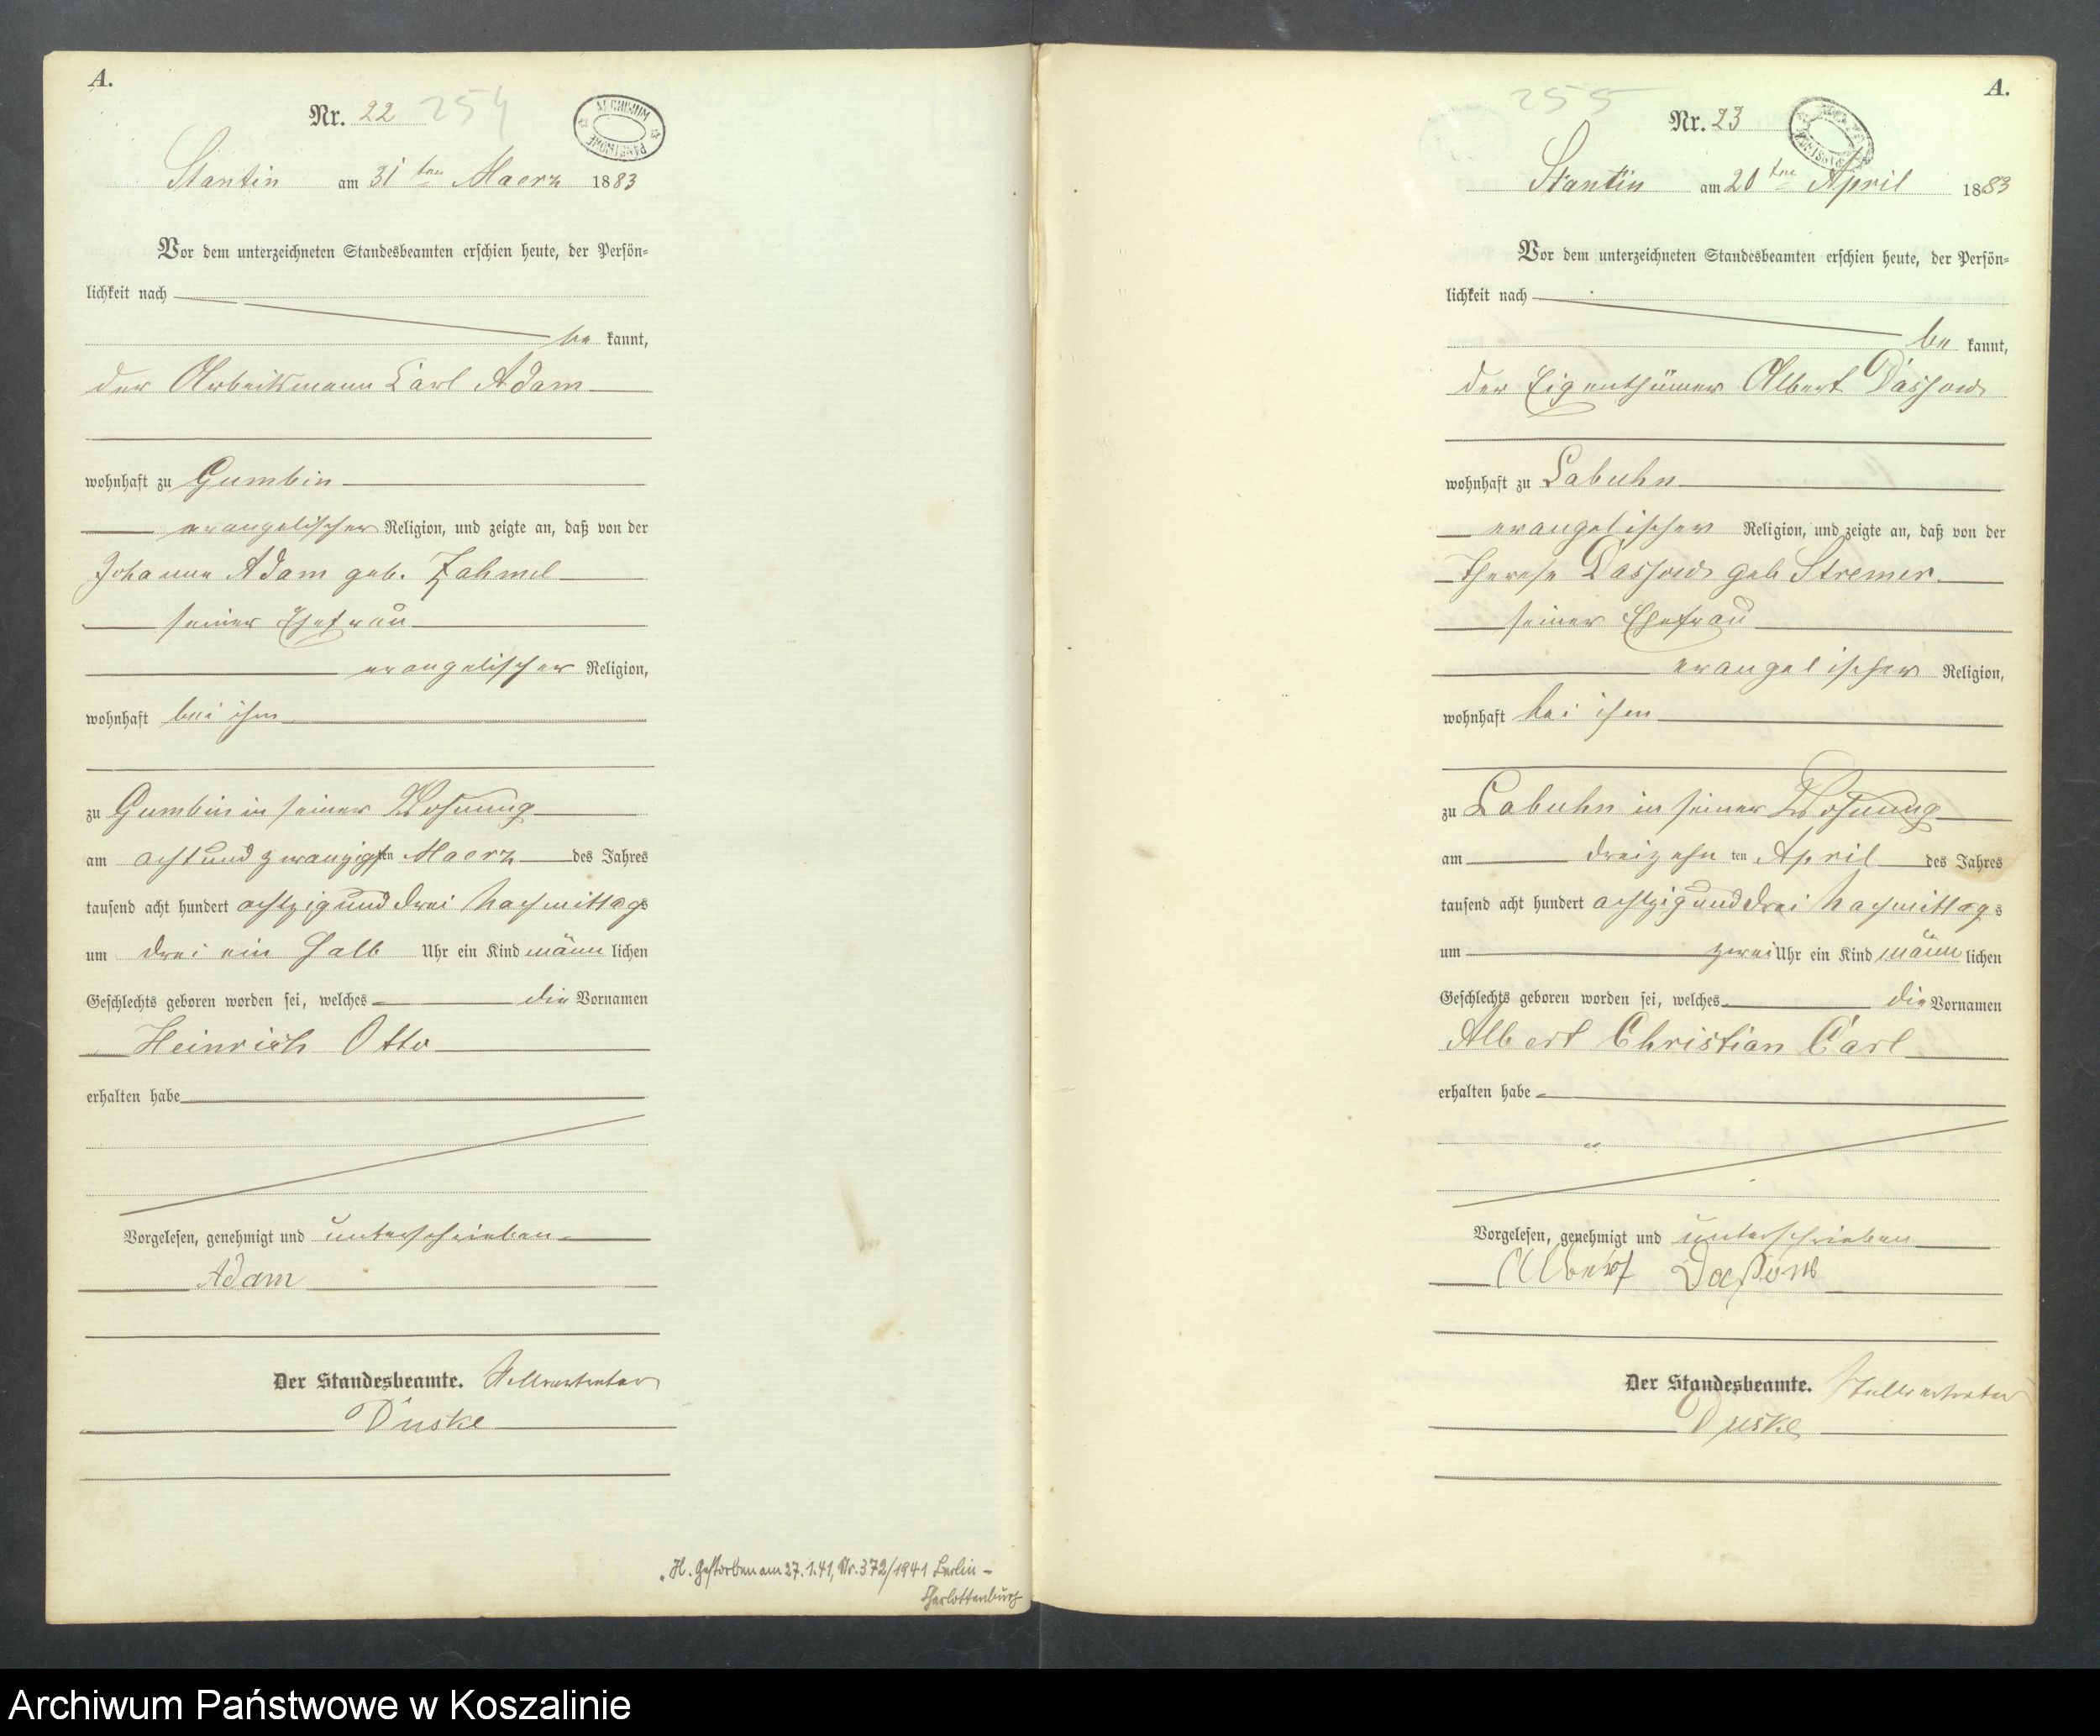 A.
Nr. 22 254
ARCHIWUM PAŃSTWOWE
Stantin am 31ten Maerz 1883
Vor dem unterzeichneten Standesbeamten erschien heute, der Persön-
lichkeit nach
be kannt,
der Arbeitsmann Carl Adam
wohnhaft zu Gumbin
evangelischer Religion, und zeigte an, daß von der
Johanne Adam geb. Zahmel
seiner Ehefrau
evangelischer Religion,
wohnhaft bei ihm
zu Gumbin in seiner Wohnung
am acht und zwanzigsten Maerz des Jahres
tausend acht hundert achtzig und drei Nachmittags
um drei ein halb Uhr ein Kind männlichen
Geschlechts geboren worden sei, welches die Vornamen
Heinrich Otto
erhalten habe
Vorgelesen, genehmigt und unterschrieben
Adam
Der Standesbeamte. Stellvertreter
Duske
H. Gestorben am 27.1.41, Nr. 372/1941 Berlin-
Charlottenburg
A.
255
Nr. 23
Stantin am 20ten April 1883
Vor dem unterzeichneten Standesbeamten erschien heute, der Persön-
lichkeit nach
be kannt,
der Eigenthümer Albert Dassow
wohnhaft zu Labuhn
evangelischer Religion, und zeigte an, daß von der
Therese Dassow geb Stremer
seiner Ehefrau
evangelischer Religion,
wohnhaft bei ihm
zu Labuhn in seiner Wohnung
am dreizehn ten April des Jahres
tausend acht hundert achtzig und drei Nachmittags
um zwei Uhr ein Kind männlichen
Geschlechts geboren worden sei, welches die Vornamen
Albert Christian Carl
erhalten habe
Vorgelesen, genehmigt und unterschrieben
Albert Daßow
Der Standesbeamte. Stellvertreter
Duske
Archiwum Państwowe w Koszalinie